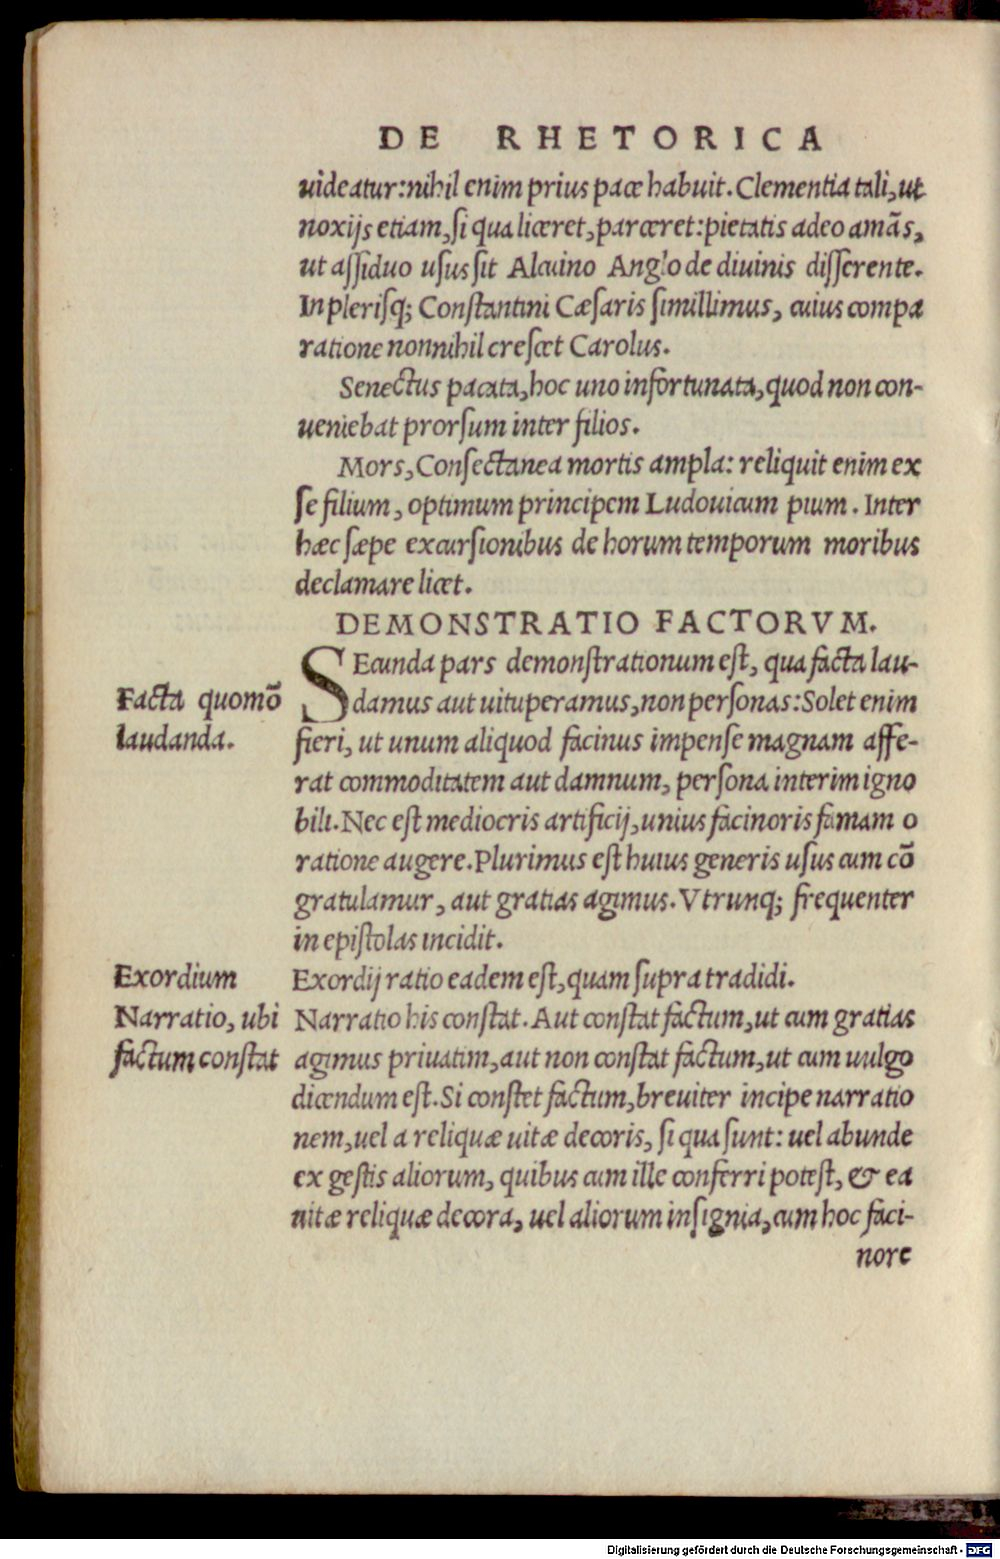 DE RHETORICA
uideatur:nihil enim prius pace habuit. Clementia tali, ut
noxijs etiam, si qua liceret, parceret: pietatis adeo amãs,
ut assiduo usus sit Alcuino Anglo de diuinis disserente.
In plerisq; Constantini Cæsaris simillimus, cuius compa
ratione nonnihil crescet Carolus.
Senectus pacata, hoc uno infortunata, quod non con-
ueniebat prorsum inter filios.
Mors, Consectanea mortis ampla: reliquit enim ex
se filium, optimum principem Ludouicum pium. Inter
hæc sæpe excursionibus de horum temporum moribus
declamare licet.
DEMONSTRATIO FACTORVM.
SEcunda pars demonstrationum est, qua facta lau-
Facta quomõ damus aut uituperamus, non personas: Solet enim
laudanda. fieri, ut unum aliquod facinus impense magnam affe-
rat commoditatem aut damnum, persona interim igno
bili. Nec est mediocris artificij, unius facinoris famam o
ratione augere. Plurimus est huius generis usus cum cõ
gratulamur, aut gratias agimus. Vtrunq; frequenter
in epistolas incidit.
Exordium Exordij ratio eadem est, quam supra tradidi.
Narratio, ubi Narratio his constat. Aut constat factum, ut cum gratias
factum constat agimus priuatim, aut non constat factum, ut cum uulgo
dicendum est. Si constet factum, breuiter incipe narratio
nem, uel a reliquæ uitæ decoris, si qua sunt: uel abunde
ex gestis aliorum, quibus cum ille conferri potest, & ea
uitæ reliquæ decora, uel aliorum insignia, cum hoc faci-
nore
Digitalisierung gefördert durch die Deutsche Forschungsgemeinschaft - DFG